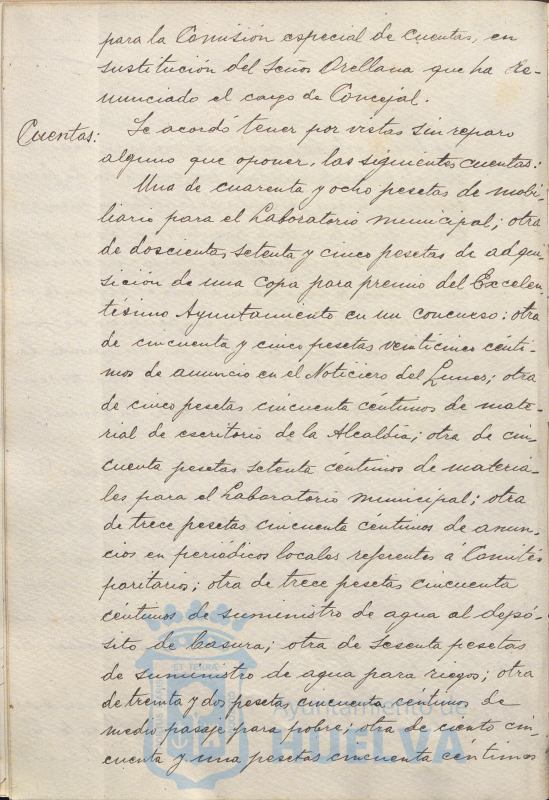 para la Comisión especial de Cuentas, en
sustitución del Señor Orellana que ha re-
nunciado el cargo de Concejal.
Cuentas: Se acordó tener por vistas sin reparo
alguno que oponer, las siguientes cuentas:
Una de cuarenta y ocho pesetas de mobi-
liario para el Laboratorio municipal; otra
de doscientas setenta y cinco pesetas de adqui-
sición de una copa para premio del Excelen-
tésimo Ayuntamiento en un concurso; otra
de cincuenta y cinco pesetas veinticinco cénti-
mos de anuncio en el Noticiero del Lunes; otra
de cinco pesetas cincuenta céntimos de mate-
rial de escritorio de la Alcaldía; otra de cin-
cuenta pesetas setenta céntimos de materia-
les para el Laboratorio municipal; otra
de trece pesetas cincuenta céntimos de anun-
cios en periódicos locales referentes á Comités
paritarios; otra de trece pesetas cincuenta
céntimos de suministro de agua al depó-
sito de basura; otra de sesenta pesetas
de suministro de agua para riegos; otra
de treinta y dos pesetas cincuenta céntimos de
medio pasaje para pobre; otra de ciento cin-
cuenta y una pesetas cincuenta céntimos
ET TERRAE
Ayuntamiento de
HUELVA